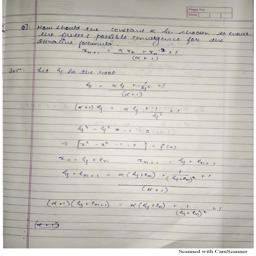 Q] How should the constant α be chosen to ensure
the fastest possible convergence for the
iterative formula
xₙ₊₁ = α xₙ + xₙ⁻² + 1
(α + 1)
Let ξ be the root
ξ = α ξ + 1/ξ² + 1
(α + 1)
(α + 1) ξ = α ξ + 1/ξ² + 1
xₙ = ξ + eₙ xₙ₊₁ = ξ + eₙ₊₁
ξ + eₙ₊₁ = α (ξ + eₙ) + 1/(ξ + eₙ)² + 1
(α + 1)
(α + 1) (ξ + eₙ₊₁) = α (ξ + eₙ) + 1/(ξ + eₙ)² + 1
Scanned with CamScanner